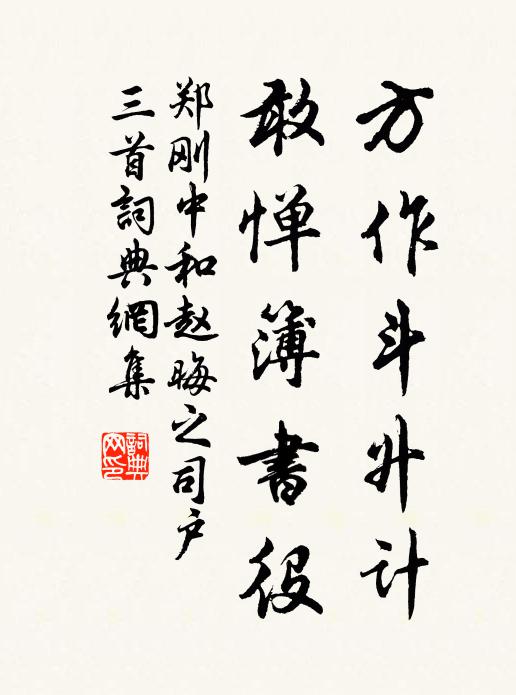 方作斗升计
敢惮簿書役
郑刚中和赵晦之司户
三首詞典網集
詞典
网印